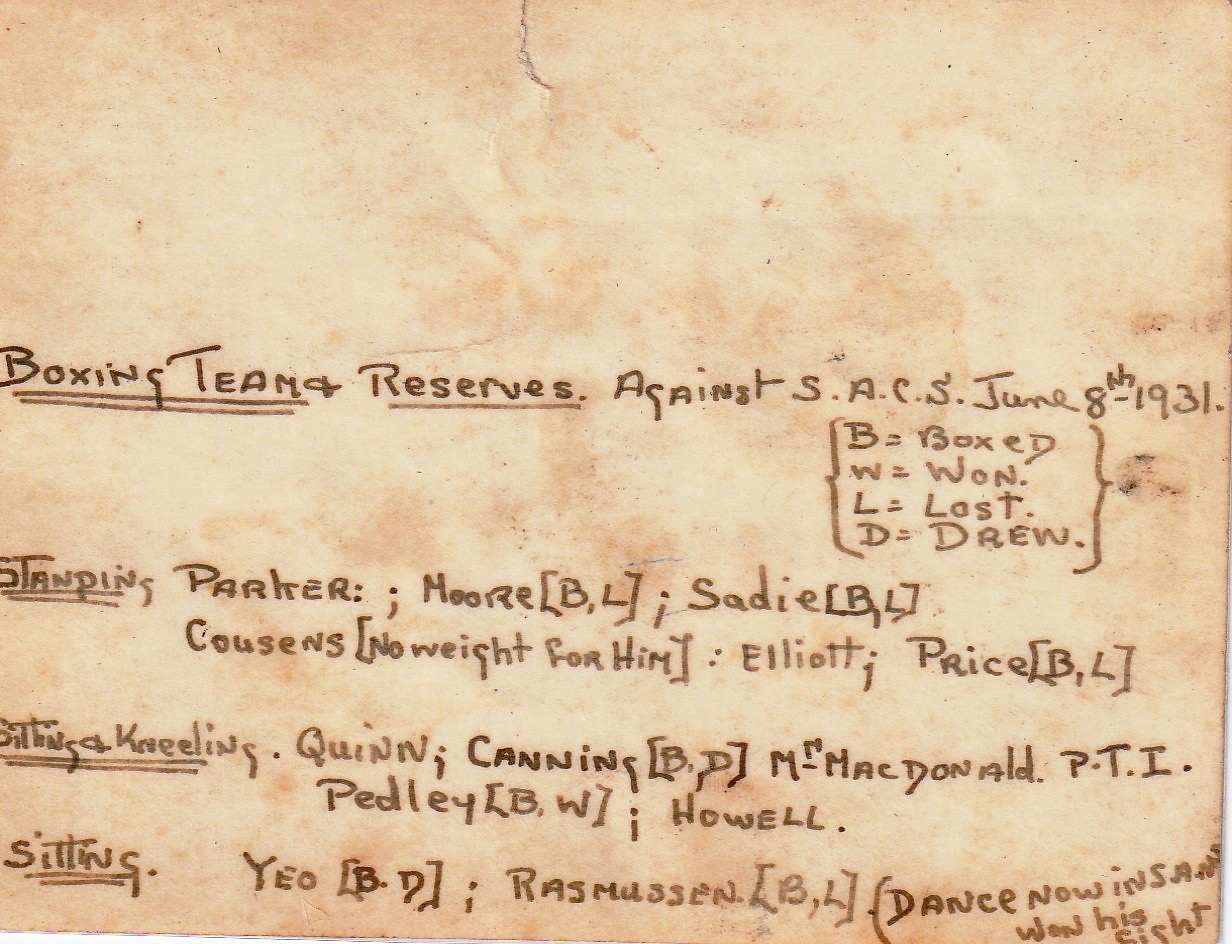 Boxing Team & Reserves. Against S.A.C.S. June 8th 1931.
B = Boxed
W = Won.
L = Lost.
D = Drew.
Standing Parker: ; Moore [B,L] ; Sadie [B,L]
Cousens [No weight for Him] : Elliott; Price [B,L]
Sitting & Kneeling. Quinn; Canning [B,D] Mr MacDonald. P.T.I.
Pedley [B,W] ; Howell.
Sitting. Yeo [B.D] ; Rasmussen. [B,L] (Dance now in S.A.N
won his
fight